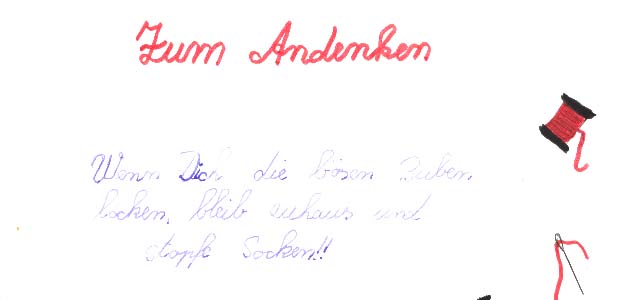 Zum Andenken
Wenn Dich die bösen Buben
locken, bleib zuhaus und
stopfe Socken!!